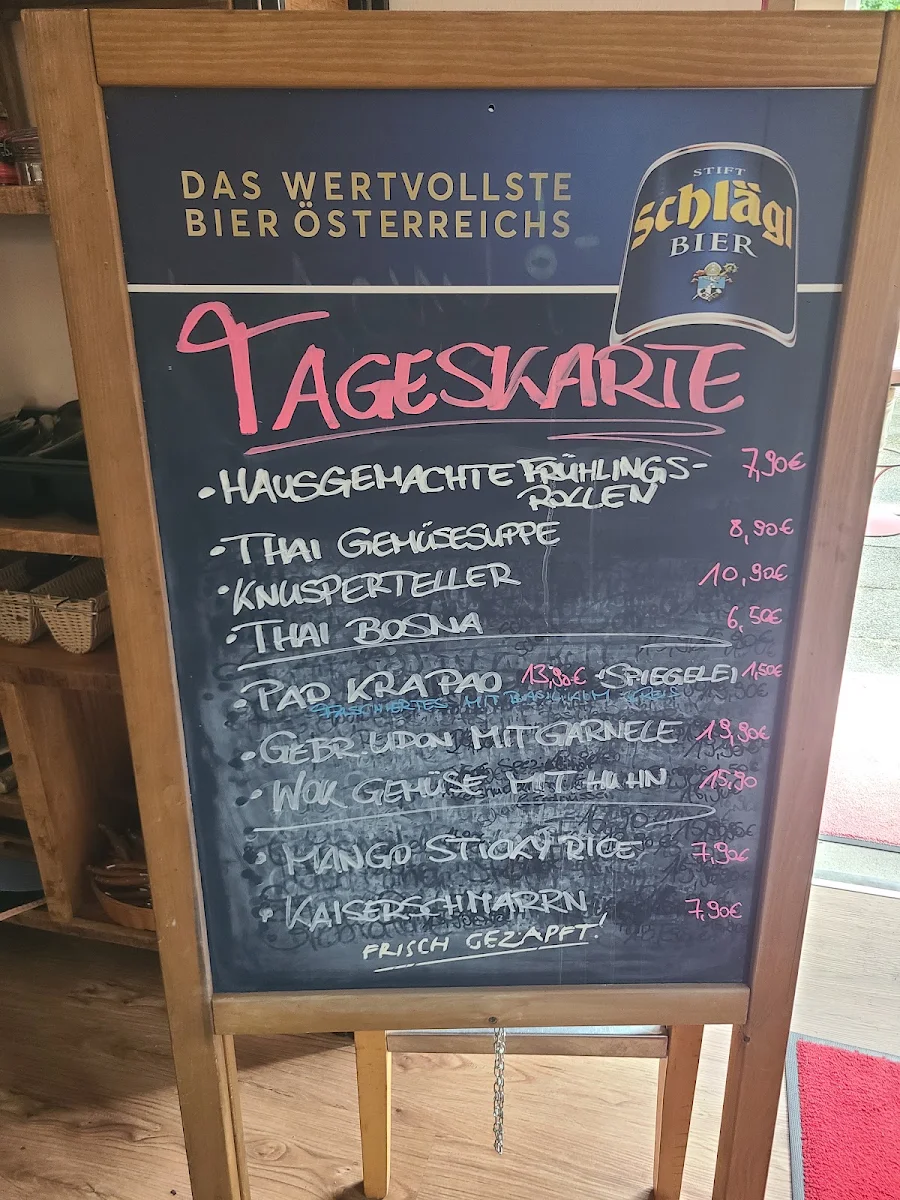 DAS WERTVOLLSTE
BIER ÖSTERREICHS
STIFT
Schlägl
BIER
TAGESKARTE
• HAUSGEMACHTE FRÜHLINGS- 7,90€
ROLLEN
• THAI GEMÜSESUPPE 8,90€
• KNUSPERTELLER 10,90€
• THAI BOSNA 6,50€
• PAD KRAPAO 13,90€ • SPIEGELEI 1,50€
MIT
• GEBR. UDON MIT GARNELE 19,90€
• WOK GEMÜSE MIT HUHN 15,90
• MANGO STICKY RICE 7,90€
• KAISERSCHMARRN 7,90€
FRISCH GEZAPFT!